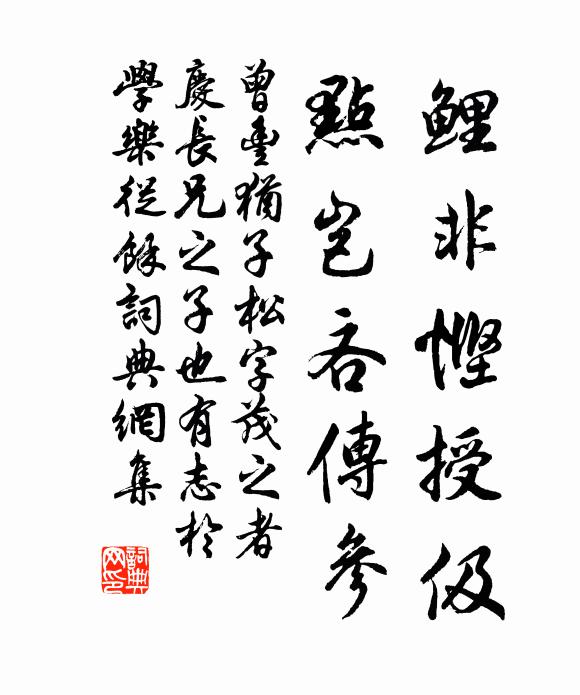 鯉非慳授伋
點豈吝傳參
曾豊猶子松字茂之者
慶長兄之子也有志於
學樂從餘詞典網集
詞典网印